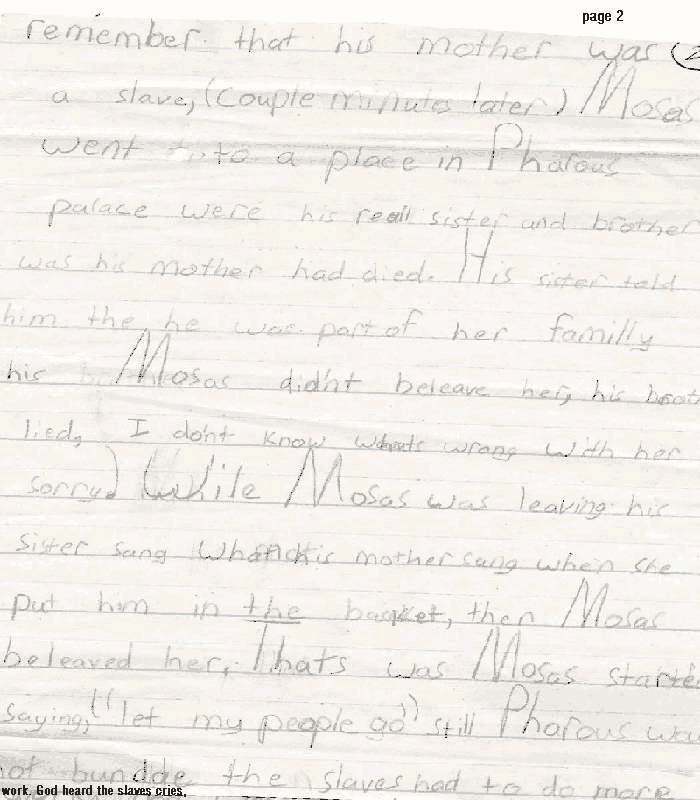 page 2
remember that his mother was (2
a slave, (couple minutes later) Mosas
went to a place in Pharous
palace were his reail sister and brother
was his mother had died. His sister told
him the he was part of her familly
his Mosas didn't beleave her, his
lied, I don't know whats wrong with her
sorry) While Mosas was leaving his
sister sang What his mother sang when she
put him in the basket, then Mosas
beleaved her, Thats was Mosas starte
saying, "let my people go" still Pharous
not bundde the slaves had to do more
work. God heard the slaves cries,